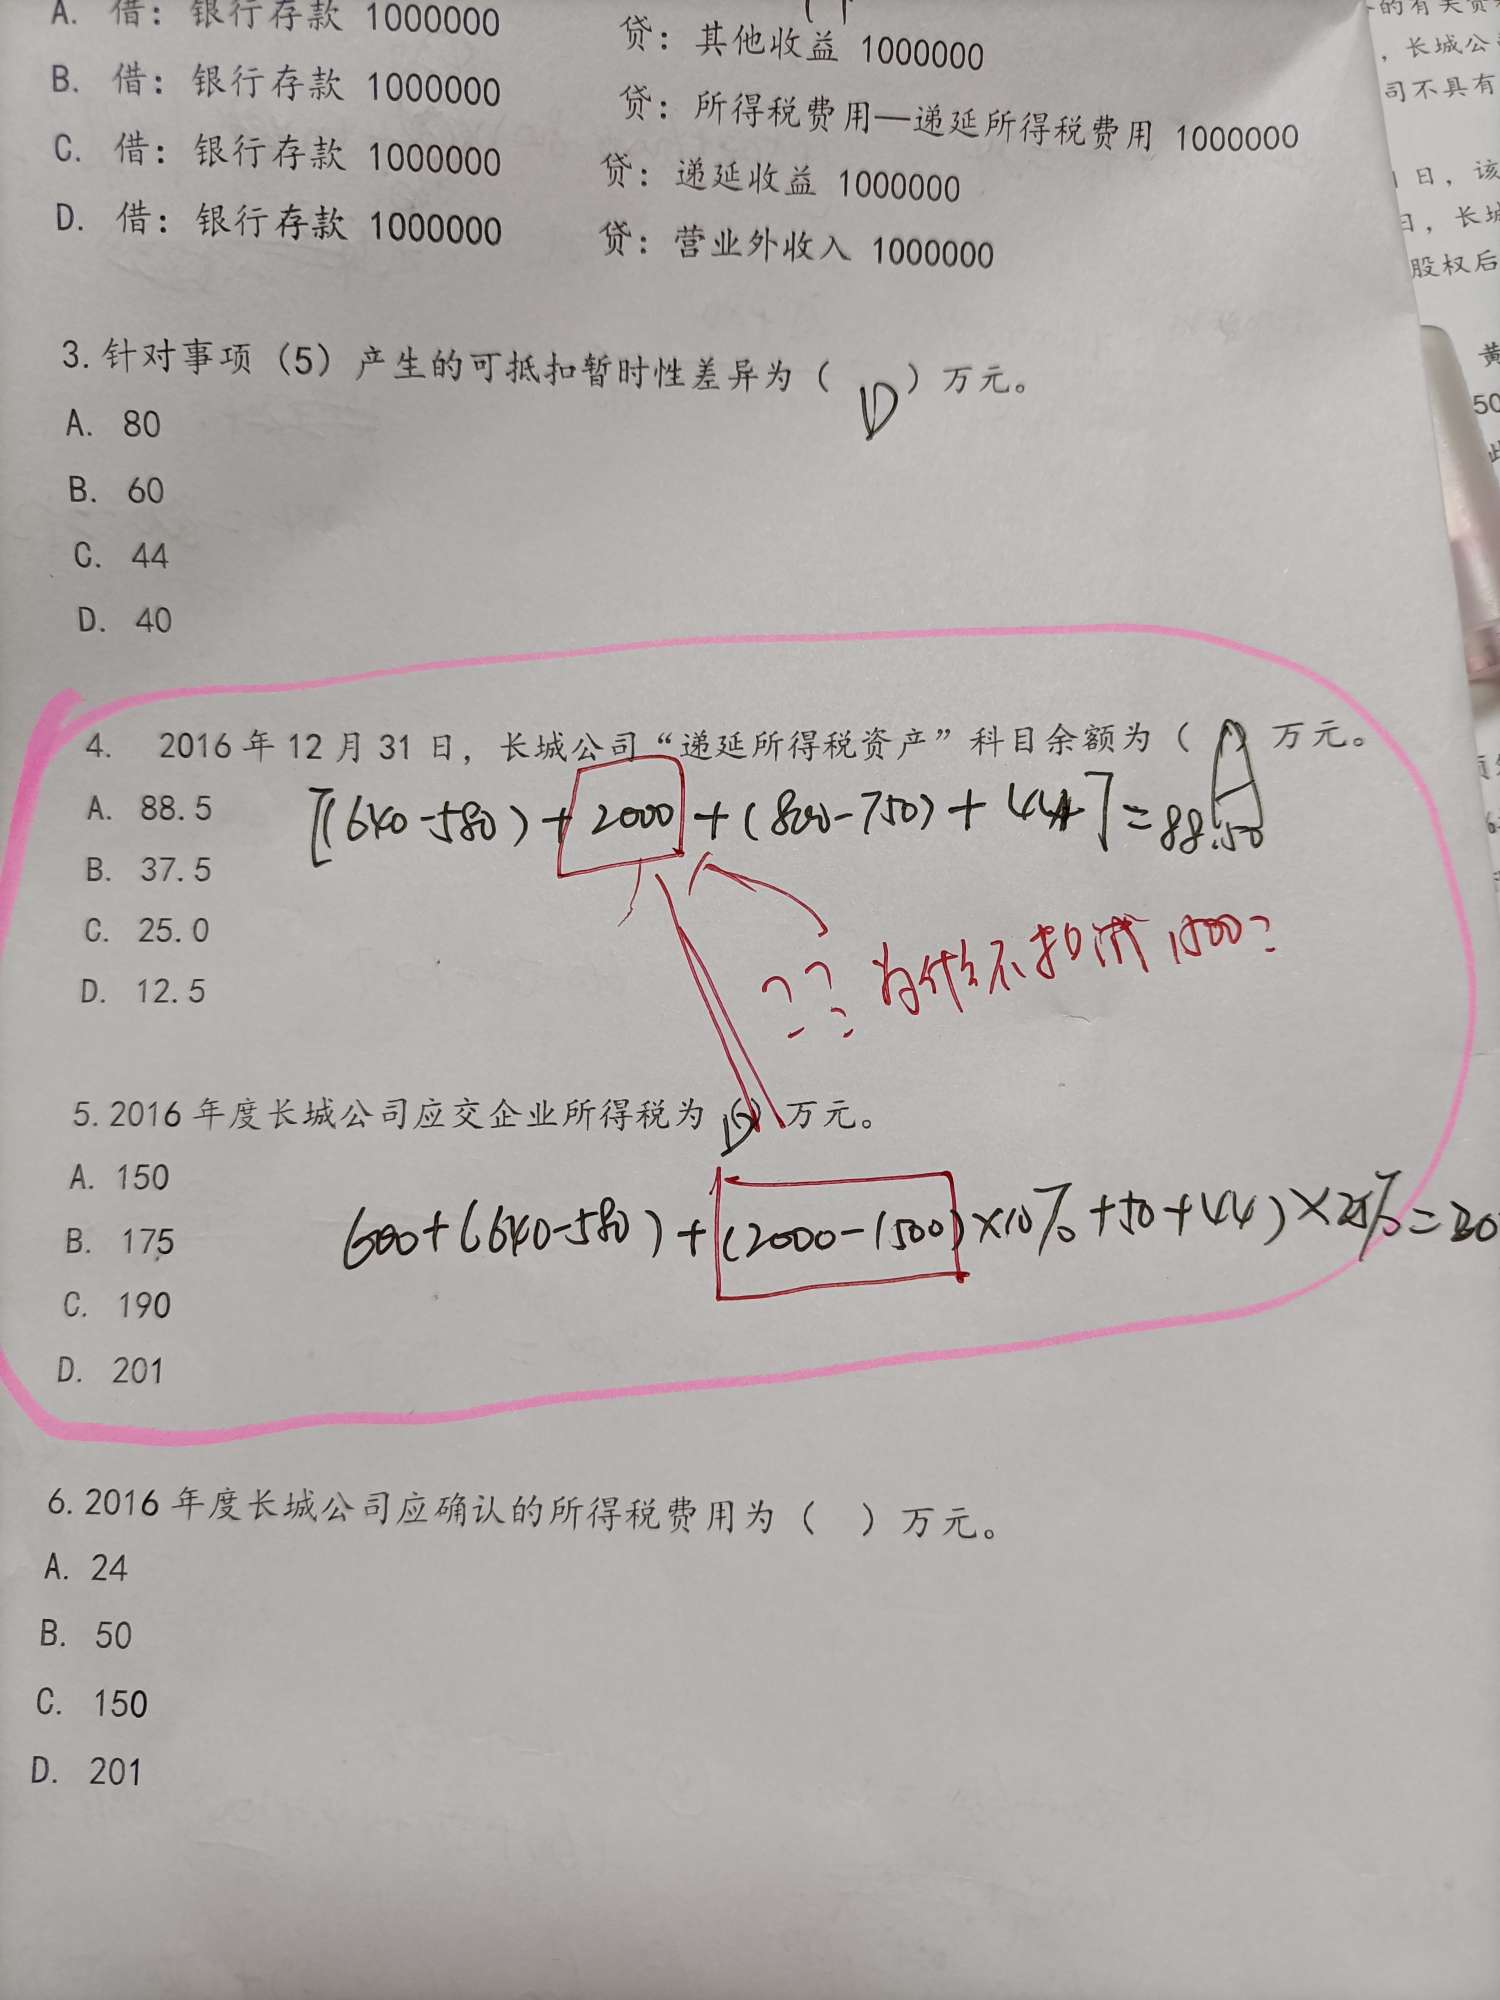 A. 借：银行存款 1000000 贷：其他收益 1000000
B. 借：银行存款 1000000 贷：所得税费用—递延所得税费用 1000000
C. 借：银行存款 1000000 贷：递延收益 1000000
D. 借：银行存款 1000000 贷：营业外收入 1000000
3.针对事项（5）产生的可抵扣暂时性差异为（ D ）万元。
A. 80
B. 60
C. 44
D. 40
4. 2016年12月31日，长城公司“递延所得税资产”科目余额为（ A ）万元。
[(640-580)+2000+(800-750)+44]=88.50
A. 88.5
B. 37.5
C. 25.0
D. 12.5
?? 为什么不扣减1500?
5.2016年度长城公司应交企业所得税为（D）万元。
A. 150
B. 175
600+(640-580)+(2000-1500)×10%+50+44)×25%=20
C. 190
D. 201
6.2016年度长城公司应确认的所得税费用为（ ）万元。
A. 24
B. 50
C. 150
D. 201
，长城公
司不具有
日，该
日，长城
股权后
黄
50